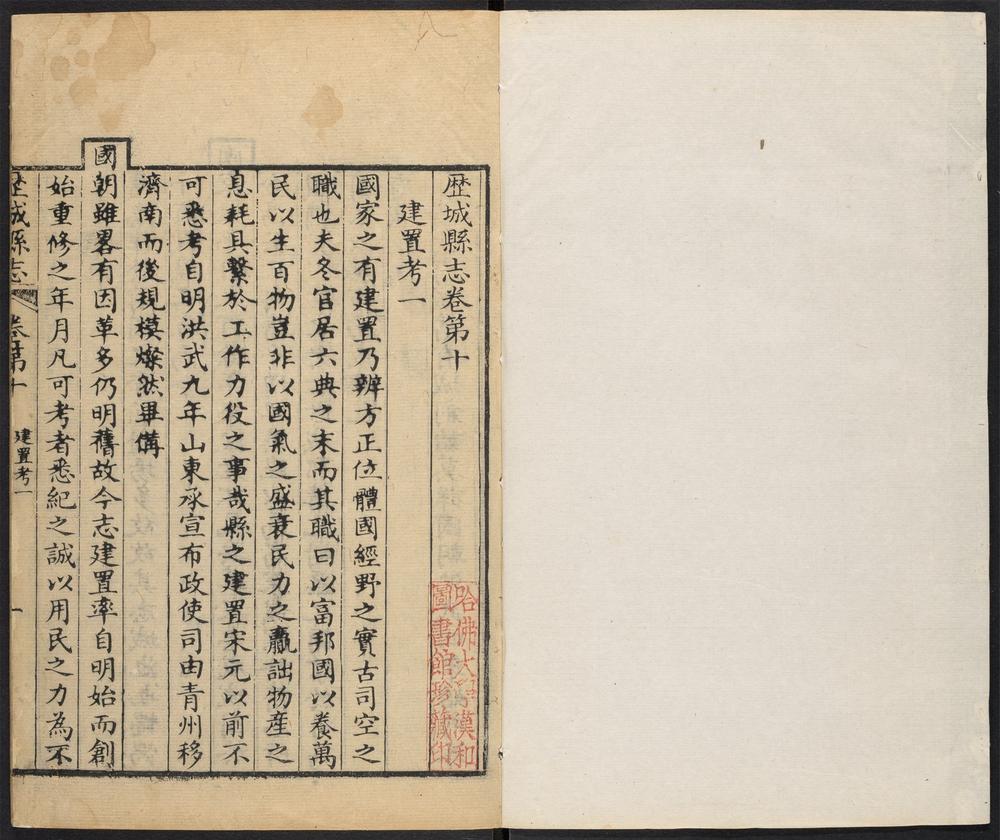 歴城縣志卷第十
建置考一
國家之有建置乃辨方正位體國經野之實古司空之
職也夫冬官居六典之末而其職曰以富邦國以養萬
民以生百物豈非以國氣之盛衰民力之贏詘物産之
息耗具繫於工作力役之事哉縣之建置宋元以前不
可悉考自明洪武九年山東承宣布政使司由青州移
濟南而後規模燦然畢備
國朝雖畧有因革多仍明舊故今志建置率自明始而創
始重修之年月凡可考者悉紀之誠以用民之力為不
歴城縣志
卷第十
建置考一
一
哈佛大學漢和
圖書館珍藏印